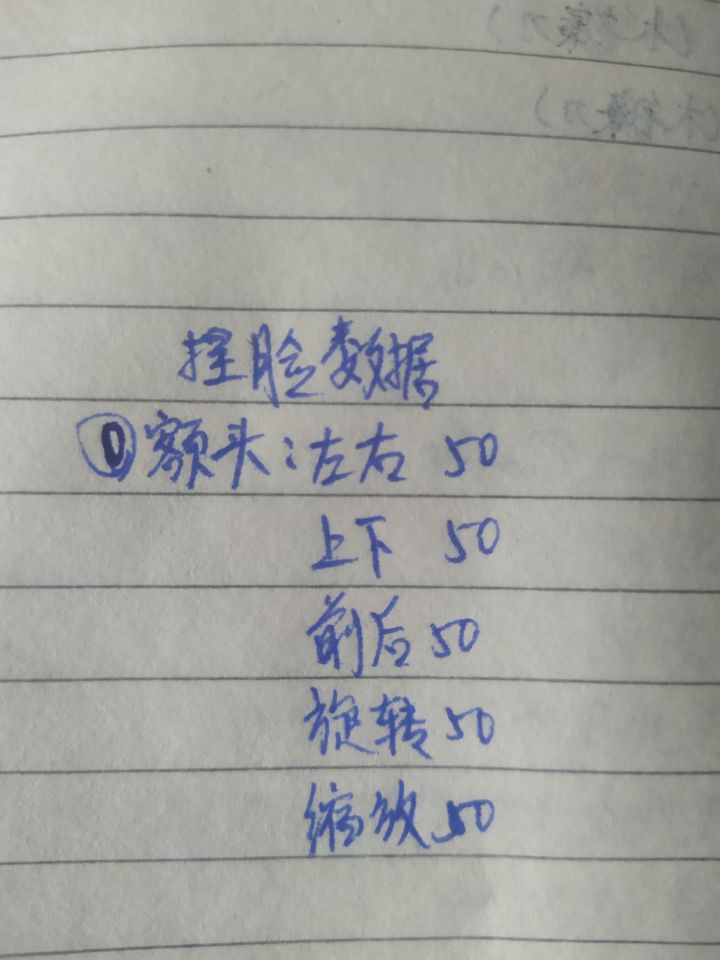 捏脸数据
①额头：左右 50
上下 50
前后 50
旋转 50
缩放 50